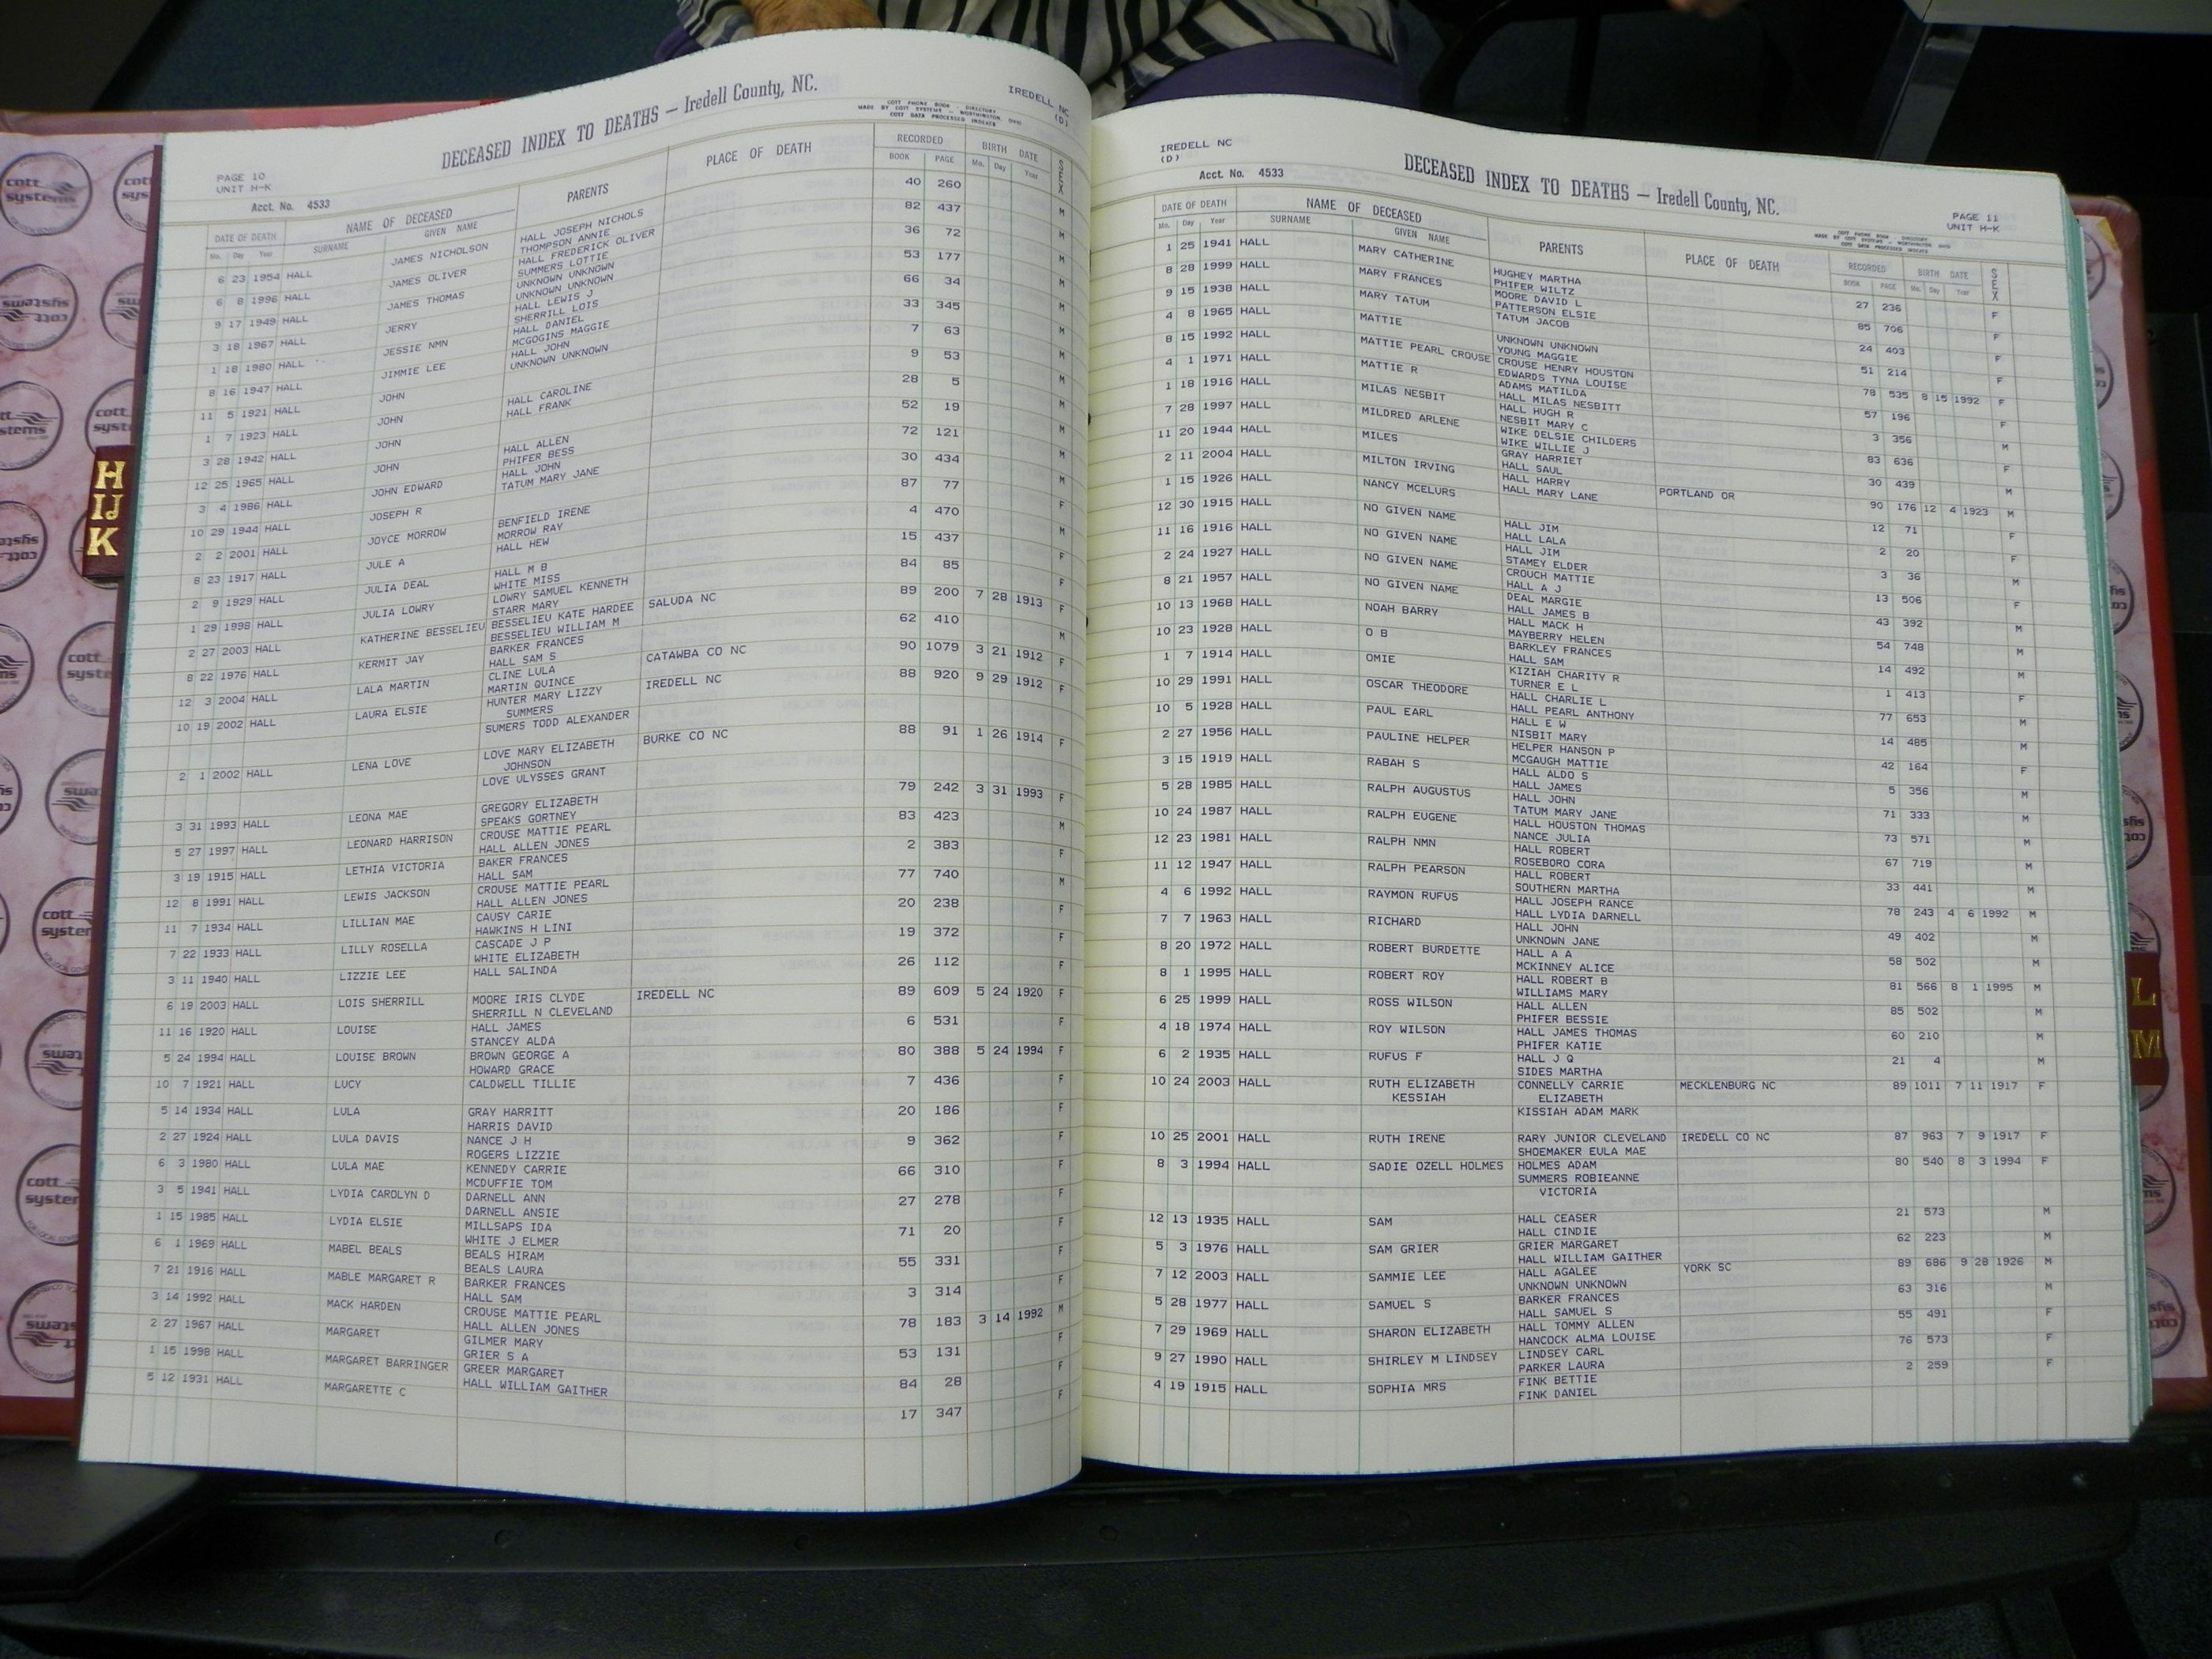 PAGE 10
UNIT H-K
DECEASED INDEX TO DEATHS — Iredell County, NC.
IREDELL NC
(D)
COTT PHONE BOOK - DIRECTORY
MADE BY COTT SYSTEMS — WORTHINGTON, OHIO
COTT DATA PROCESSED INDEXES
Acct. No. 4533
DATE OF DEATH NAME OF DECEASED PARENTS PLACE OF DEATH RECORDED BIRTH DATE SEX
Mo. Day Year SURNAME GIVEN NAME BOOK PAGE Mo. Day Year
6 23 1954 HALL JAMES NICHOLSON HALL JOSEPH NICHOLS 40 260 M
THOMPSON ANNIE
6 8 1996 HALL JAMES OLIVER HALL FREDERICK OLIVER 82 437 M
SUMMERS LOTTIE
9 17 1949 HALL JAMES THOMAS UNKNOWN UNKNOWN 36 72 M
UNKNOWN UNKNOWN
3 18 1967 HALL JERRY HALL LEWIS J 53 177 M
SHERRILL LOIS
1 18 1980 HALL JESSIE NMN HALL DANIEL 66 34 M
MCGOGINS MAGGIE
8 16 1947 HALL JIMMIE LEE HALL JOHN 33 345 M
UNKNOWN UNKNOWN
11 5 1921 HALL JOHN 7 63 M
1 7 1923 HALL JOHN HALL CAROLINE 9 53 M
HALL FRANK
3 28 1942 HALL JOHN 28 5 M
12 25 1965 HALL JOHN HALL ALLEN 52 19 M
PHIFER BESS
3 4 1986 HALL JOHN EDWARD HALL JOHN 72 121 M
TATUM MARY JANE
10 29 1944 HALL JOSEPH R 30 434 M
2 2 2001 HALL JOYCE MORROW BENFIELD IRENE 87 77 F
MORROW RAY
8 23 1917 HALL JULE A HALL HEW 4 470 M
2 9 1929 HALL JULIA DEAL HALL M B 15 437 F
WHITE MISS
1 29 1998 HALL JULIA LOWRY LOWRY SAMUEL KENNETH 84 85 F
STARR MARY
2 27 2003 HALL KATHERINE BESSELIEU BESSELIEU KATE HARDEE SALUDA NC 89 200 7 28 1913 F
BESSELIEU WILLIAM M
8 22 1976 HALL KERMIT JAY BARKER FRANCES 62 410 M
HALL SAM S
12 3 2004 HALL LALA MARTIN CLINE LULA CATAWBA CO NC 90 1079 3 21 1912 F
MARTIN QUINCE
10 19 2002 HALL LAURA ELSIE HUNTER MARY LIZZY IREDELL NC 88 920 9 29 1912 F
SUMMERS
SUMERS TODD ALEXANDER
2 1 2002 HALL LENA LOVE LOVE MARY ELIZABETH BURKE CO NC 88 91 1 26 1914 F
JOHNSON
LOVE ULYSSES GRANT
3 31 1993 HALL LEONA MAE GREGORY ELIZABETH 79 242 3 31 1993 F
SPEAKS GORTNEY
5 27 1997 HALL LEONARD HARRISON CROUSE MATTIE PEARL 83 423 M
HALL ALLEN JONES
3 19 1915 HALL LETHIA VICTORIA BAKER FRANCES 2 383 F
HALL SAM
12 8 1991 HALL LEWIS JACKSON CROUSE MATTIE PEARL 77 740 M
HALL ALLEN JONES
11 7 1934 HALL LILLIAN MAE CAUSY CARIE 20 238 F
HAWKINS H LINI
7 22 1933 HALL LILLY ROSELLA CASCADE J P 19 372 F
WHITE ELIZABETH
3 11 1940 HALL LIZZIE LEE HALL SALINDA 26 112 F
6 19 2003 HALL LOIS SHERRILL MOORE IRIS CLYDE IREDELL NC 89 609 5 24 1920 F
SHERRILL N CLEVELAND
11 16 1920 HALL LOUISE HALL JAMES 6 531 F
STANCEY ALDA
5 24 1994 HALL LOUISE BROWN BROWN GEORGE A 80 388 5 24 1994 F
HOWARD GRACE
10 7 1921 HALL LUCY CALDWELL TILLIE 7 436 F
5 14 1934 HALL LULA GRAY HARRITT 20 186 F
HARRIS DAVID
2 27 1924 HALL LULA DAVIS NANCE J H 9 362 F
ROGERS LIZZIE
6 3 1980 HALL LULA MAE KENNEDY CARRIE 66 310 F
MCDUFFIE TOM
3 5 1941 HALL LYDIA CAROLYN D DARNELL ANN 27 278 F
DARNELL ANSIE
1 15 1985 HALL LYDIA ELSIE MILLSAPS IDA 71 20 F
WHITE J ELMER
6 1 1969 HALL MABEL BEALS BEALS HIRAM 55 331 F
BEALS LAURA
7 21 1916 HALL MABLE MARGARET R BARKER FRANCES 3 314 F
HALL SAM
3 14 1992 HALL MACK HARDEN CROUSE MATTIE PEARL 78 183 3 14 1992 M
HALL ALLEN JONES
2 27 1967 HALL MARGARET GILMER MARY 53 131 F
GRIER S A
1 15 1998 HALL MARGARET BARRINGER GREER MARGARET 84 28 F
HALL WILLIAM GAITHER
5 12 1931 HALL MARGARETTE C 17 347 F
IREDELL NC
(D)
Acct. No. 4533
DECEASED INDEX TO DEATHS — Iredell County, NC.
PAGE 11
UNIT H-K
DATE OF DEATH NAME OF DECEASED PARENTS PLACE OF DEATH RECORDED BIRTH DATE SEX
Mo. Day Year SURNAME GIVEN NAME BOOK PAGE Mo. Day Year
1 25 1941 HALL MARY CATHERINE HUGHEY MARTHA 27 236 F
PHIFER WILTZ
8 28 1999 HALL MARY FRANCES MOORE DAVID L 85 706 F
PATTERSON ELSIE
9 15 1938 HALL MARY TATUM TATUM JACOB 24 403 F
4 8 1965 HALL MATTIE UNKNOWN UNKNOWN 51 214 F
YOUNG MAGGIE
8 15 1992 HALL MATTIE PEARL CROUSE CROUSE HENRY HOUSTON 78 535 8 15 1992 F
EDWARDS TYNA LOUISE
4 1 1971 HALL MATTIE R ADAMS MATILDA 57 196 F
HALL MILAS NESBITT
1 18 1916 HALL MILAS NESBIT HALL HUGH R 3 356 M
NESBIT MARY C
7 28 1997 HALL MILDRED ARLENE WIKE DELSIE CHILDERS 83 636 F
WIKE WILLIE J
11 20 1944 HALL MILES GRAY HARRIET 30 439 M
HALL SAUL
2 11 2004 HALL MILTON IRVING HALL HARRY PORTLAND OR 90 176 12 4 1923 M
HALL MARY LANE
1 15 1926 HALL NANCY MCELURS 12 71 F
12 30 1915 HALL NO GIVEN NAME HALL JIM 2 20 F
HALL LALA
11 16 1916 HALL NO GIVEN NAME HALL JIM 3 36 M
STAMEY ELDER
2 24 1927 HALL NO GIVEN NAME CROUCH MATTIE 13 506 F
HALL A J
8 21 1957 HALL NO GIVEN NAME DEAL MARGIE 43 392 M
HALL JAMES B
10 13 1968 HALL NOAH BARRY HALL MACK H 54 748 M
MAYBERRY HELEN
10 23 1928 HALL O B BARKLEY FRANCES 14 492 M
HALL SAM
1 7 1914 HALL OMIE KIZIAH CHARITY R 1 413 F
TURNER E L
10 29 1991 HALL OSCAR THEODORE HALL CHARLIE L 77 653 M
HALL PEARL ANTHONY
10 5 1928 HALL PAUL EARL HALL E W 14 485 M
NISBIT MARY
2 27 1956 HALL PAULINE HELPER HELPER HANSON P 42 164 F
MCGAUGH MATTIE
3 15 1919 HALL RABAH S HALL ALDO S 5 356 M
HALL JAMES
5 28 1985 HALL RALPH AUGUSTUS HALL JOHN 71 333 M
TATUM MARY JANE
10 24 1987 HALL RALPH EUGENE HALL HOUSTON THOMAS 73 571 M
NANCE JULIA
12 23 1981 HALL RALPH NMN HALL ROBERT 67 719 M
ROSEBORO CORA
11 12 1947 HALL RALPH PEARSON HALL ROBERT 33 441 M
SOUTHERN MARTHA
4 6 1992 HALL RAYMON RUFUS HALL JOSEPH RANCE 78 243 4 6 1992 M
HALL LYDIA DARNELL
7 7 1963 HALL RICHARD HALL JOHN 49 402 M
UNKNOWN JANE
8 20 1972 HALL ROBERT BURDETTE HALL A A 58 502 M
MCKINNEY ALICE
8 1 1995 HALL ROBERT ROY HALL ROBERT B 81 566 8 1 1995 M
WILLIAMS MARY
6 25 1999 HALL ROSS WILSON HALL ALLEN 85 502 M
PHIFER BESSIE
4 18 1974 HALL ROY WILSON HALL JAMES THOMAS 60 210 M
PHIFER KATIE
6 2 1935 HALL RUFUS F HALL J Q 21 4 M
SIDES MARTHA
10 24 2003 HALL RUTH ELIZABETH CONNELLY CARRIE MECKLENBURG NC 89 1011 7 11 1917 F
KESSIAH ELIZABETH
KISSIAH ADAM MARK
10 25 2001 HALL RUTH IRENE RARY JUNIOR CLEVELAND IREDELL CO NC 87 963 7 9 1917 F
SHOEMAKER EULA MAE
8 3 1994 HALL SADIE OZELL HOLMES HOLMES ADAM 80 540 8 3 1994 F
SUMMERS ROBIEANNE
VICTORIA
12 13 1935 HALL SAM HALL CEASER 21 573 M
HALL CINDIE
5 3 1976 HALL SAM GRIER GRIER MARGARET 62 223 M
HALL WILLIAM GAITHER
7 12 2003 HALL SAMMIE LEE HALL AGALEE YORK SC 89 686 9 28 1926 M
UNKNOWN UNKNOWN
5 28 1977 HALL SAMUEL S BARKER FRANCES 63 316 M
HALL SAMUEL S
7 29 1969 HALL SHARON ELIZABETH HALL TOMMY ALLEN 55 491 F
HANCOCK ALMA LOUISE
9 27 1990 HALL SHIRLEY M LINDSEY LINDSEY CARL 76 573 F
PARKER LAURA
4 19 1915 HALL SOPHIA MRS FINK BETTIE 2 259 F
FINK DANIEL
H
IJ
K
L
M
cott
systems